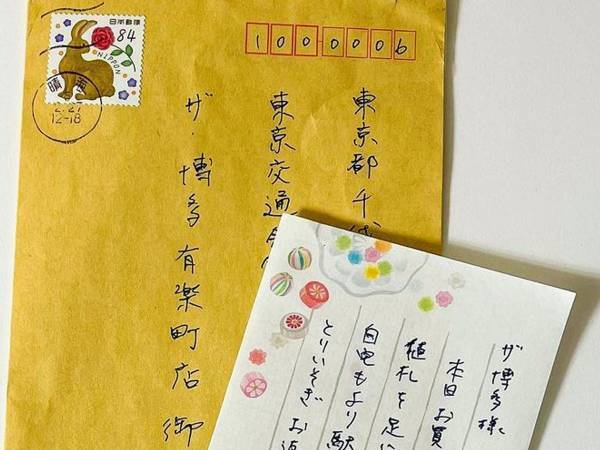 日本郵便
84
NIPPON
晴海
2.27
12-18
1000006
東京都千代
東京交通会
ザ・博多有楽町店 御
ザ博多様
本日お買
値札を足に
自宅もより駅
とりいそぎ お返